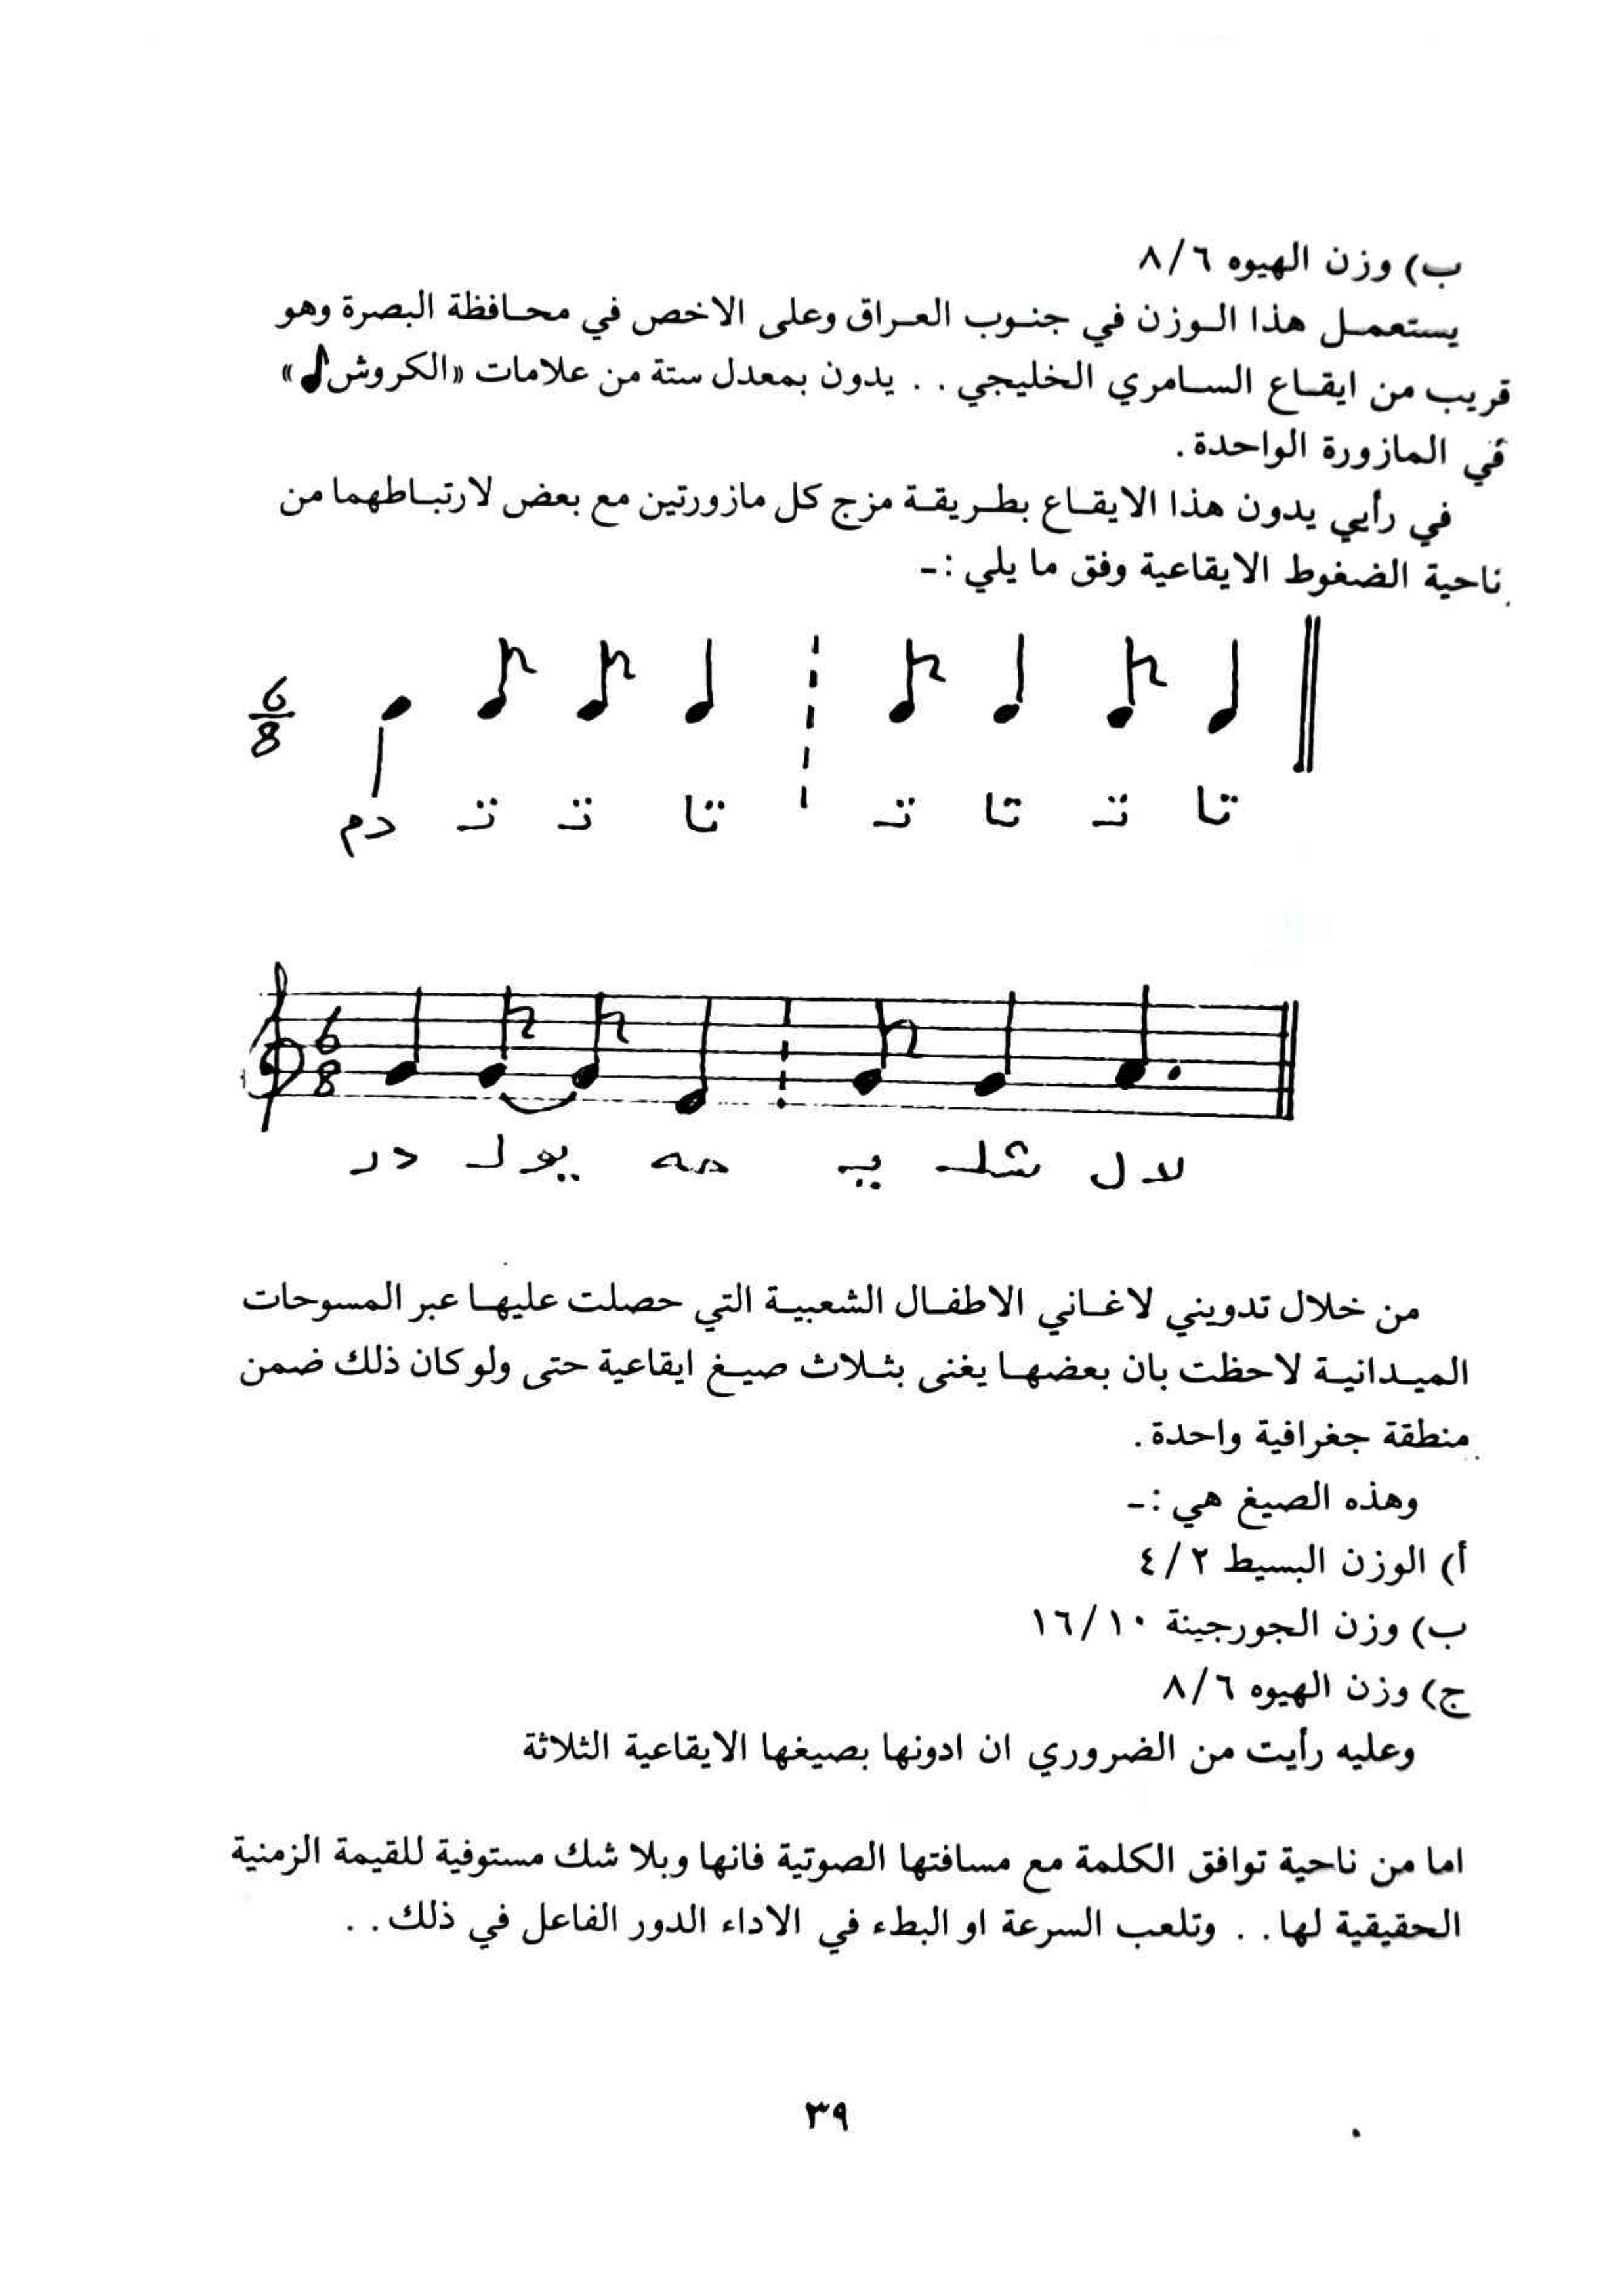 ب) وزن الهيوه ٨/٦
يستعمل هذا الوزن في جنوب العراق وعلى الاخص في محافظة البصرة وهو
قريب من ايقاع السامري الخليجي . . يدون بمعدل ستة من علامات «الكروش♪»
في المازورة الواحدة .
في رأيي يدون هذا الايقاع بطريقة مزج كل مازورتين مع بعض لارتباطهما من
ناحية الضغوط الايقاعية وفق ما يلي :ـ
6
8
دم تـ تـ تا تـ تا تـ تا
6
8
در يولـ مه يـ شلـ لال
من خلال تدويني لاغاني الاطفال الشعبية التي حصلت عليها عبر المسوحات
الميدانية لاحظت بان بعضها يغنى بثلاث صيغ ايقاعية حتى ولو كان ذلك ضمن
منطقة جغرافية واحدة .
وهذه الصيغ هي :ـ
أ) الوزن البسيط ٤/٢
ب) وزن الجورجينة ١٦/١٠
ج) وزن الهيوه ٨/٦
وعليه رأيت من الضروري ان ادونها بصيغها الايقاعية الثلاثة
اما من ناحية توافق الكلمة مع مسافتها الصوتية فانها وبلا شك مستوفية للقيمة الزمنية
الحقيقية لها . . وتلعب السرعة او البطء في الاداء الدور الفاعل في ذلك . .
٣٩